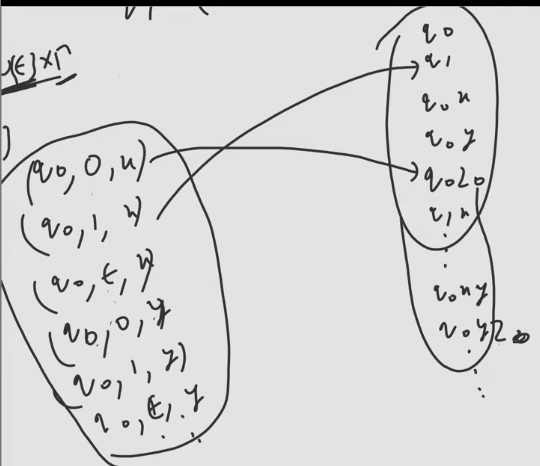 ∪{ε}×Γ
(q0, 0, x)
(q0, 1, x)
(q0, ε, x)
(q0, 0, y)
(q0, 1, y)
q0, ε, y
q0
q1
q0x
q0y
q0z0
q1x
q0xy
q0yz0